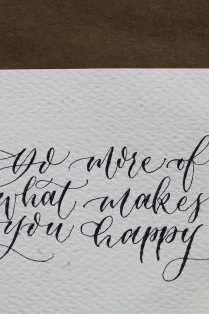 Do more of
what makes
you happy